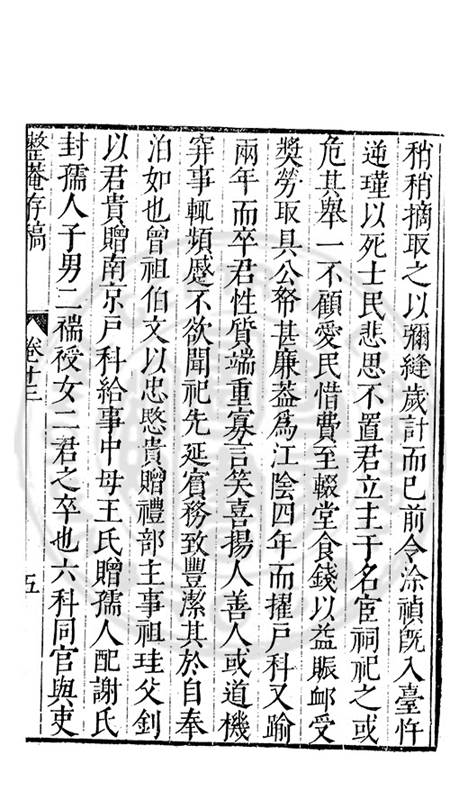 稍稍摘取之以彌縫歲計而已前令涂禎旣入臺忤
逆瑾以死士民悲思不置君立主于名宦祠祀之或
危其舉一不顧愛民惜費至輟堂食錢以益賑卹受
獎勞取具公帑甚廉葢爲江陰四年而擢戶科又踰
兩年而卒君性質端重寡言笑喜揚人善人或道機
穽事輒頻蹙不欲聞祀先延賓務致豐潔其於自奉
泊如也曾祖伯文以忠愍貴贈禮部主事祖珪父釗
以君貴贈南京戶科給事中母王氏贈孺人配謝氏
封孺人子男二襦祋女二君之卒也六科同官與吏
整菴存稿
卷十三
五